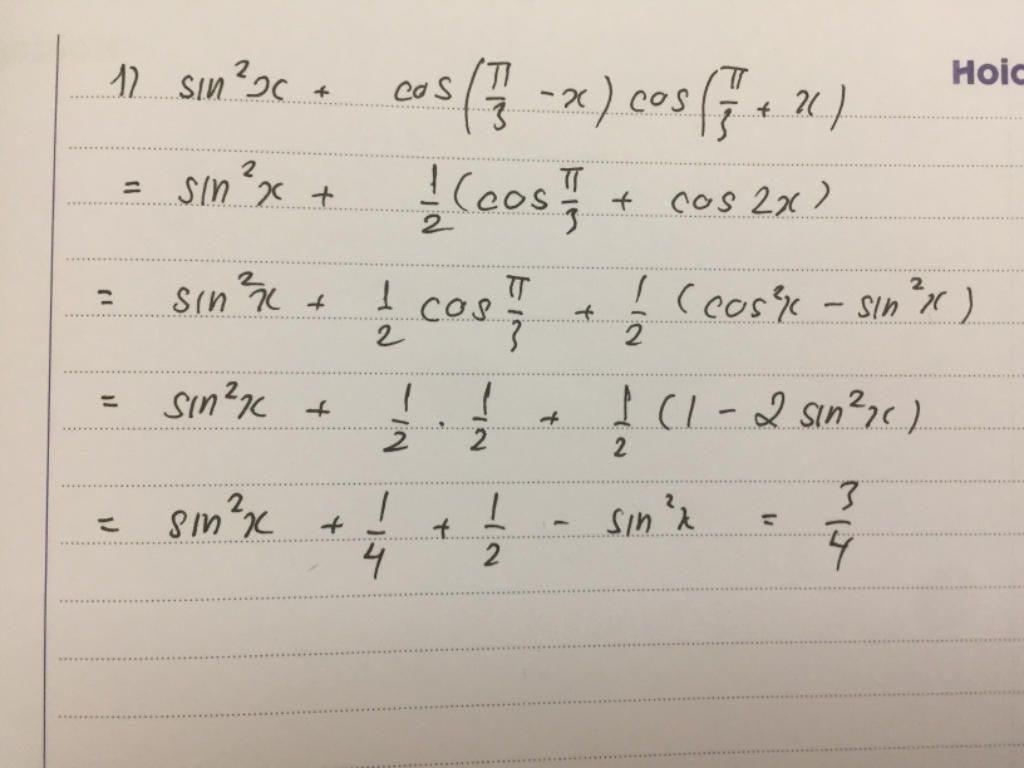 Hoic
1) sin²x + cos(π/3 - x) cos(π/3 + x)
= sin²x + 1/2 (cos π/3 + cos 2x)
= sin²x + 1/2 cos π/3 + 1/2 (cos²x - sin²x)
= sin²x + 1/2 . 1/2 + 1/2 (1 - 2 sin²x)
= sin²x + 1/4 + 1/2 - sin²x = 3/4